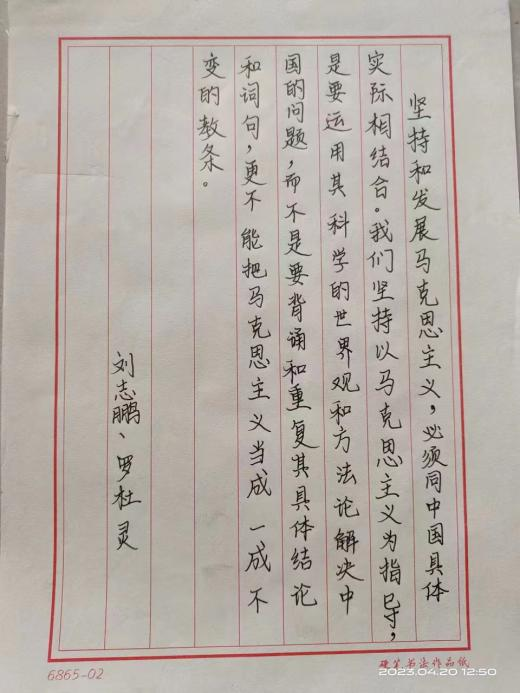 坚持和发展马克思主义，必须同中国具体
实际相结合。我们坚持以马克思主义为指导，
是要运用其科学的世界观和方法论解决中
国的问题，而不是要背诵和重复其具体结论
和词句，更不能把马克思主义当成一成不
变的教条。
刘志鹏、罗杜灵
6865-02
硬笔书法作品纸
2023.04.20 12:50